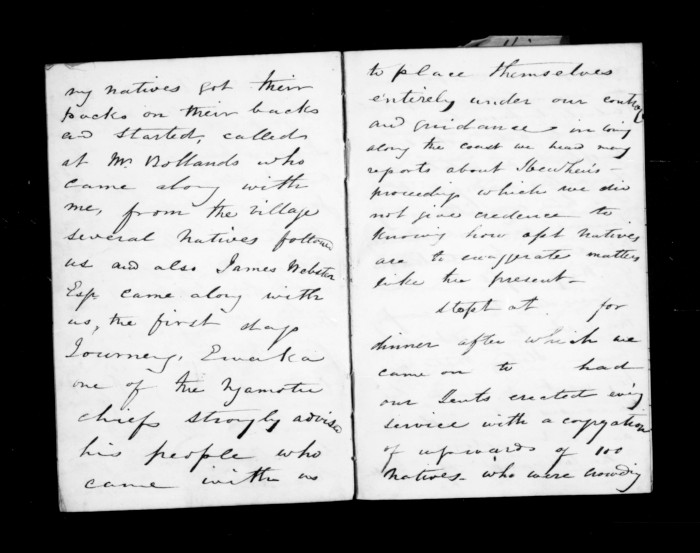 my natives got their
packs on their backs
and started, called
at Mr Bollands who
came along with
me, from the village
several natives followed
us and also James Webster
Esq came along with
us, the first days
Journey, Ewaka
one of the Nyamotu
chiefs strongly advised
his people who
came with us
to place themselves
entirely under our control
and guidance in going
along the coast we head many
reports about
proceedings which we did
not give credence to
knowing how apt natives
are to exaggerate matters
like the present -
stopt at for
dinner after which we
came on to had
our Tents erected
service with a
of upwards of 100
natives - who were crowding